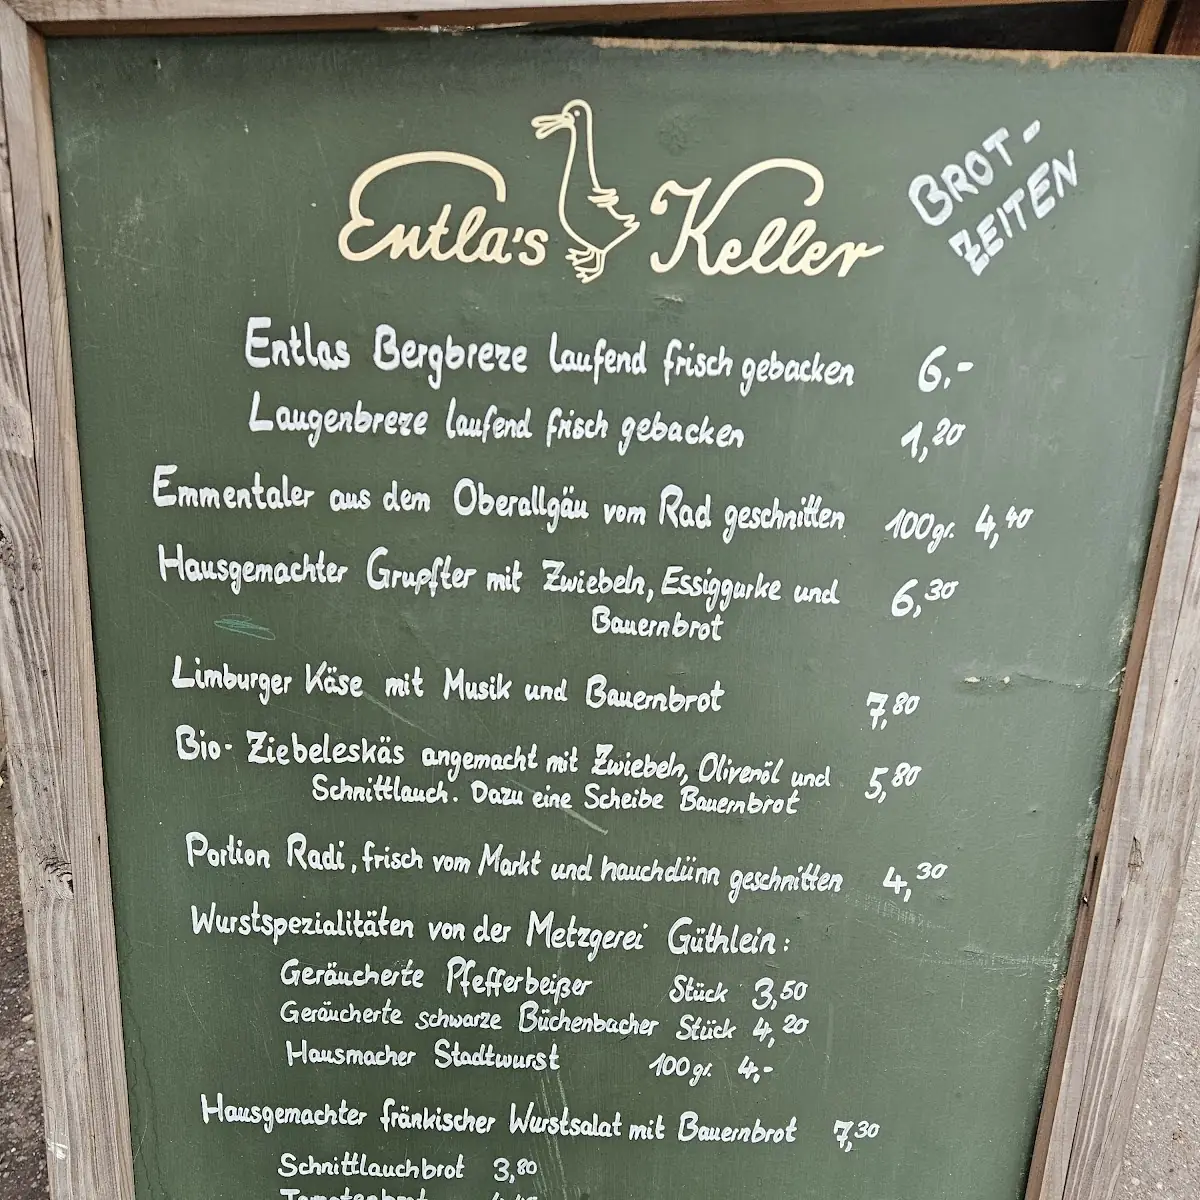 Entla's Keller
BROT-
ZEITEN
Entlas Bergbreze laufend frisch gebacken 6.-
Laugenbreze laufend frisch gebacken 1,20
Emmentaler aus dem Oberallgäu vom Rad geschnitten 100gr. 4,40
Hausgemachter Grupfter mit Zwiebeln, Essiggurke und 6,30
Bauernbrot
Limburger Käse mit Musik und Bauernbrot 7,80
Bio- Ziebeleskäs angemacht mit Zwiebeln, Olivenöl und 5,80
Schnittlauch. Dazu eine Scheibe Bauernbrot
Portion Radi, frisch vom Markt und hauchdünn geschnitten 4,30
Wurstspezialitäten von der Metzgerei Güthlein:
Geräucherte Pfefferbeißer Stück 3,50
Geräucherte schwarze Büchenbacher Stück 4,20
Hausmacher Stadtwurst 100gr. 4,-
Hausgemachter fränkischer Wurstsalat mit Bauernbrot 7,30
Schnittlauchbrot 3,80
Tomatenbrot